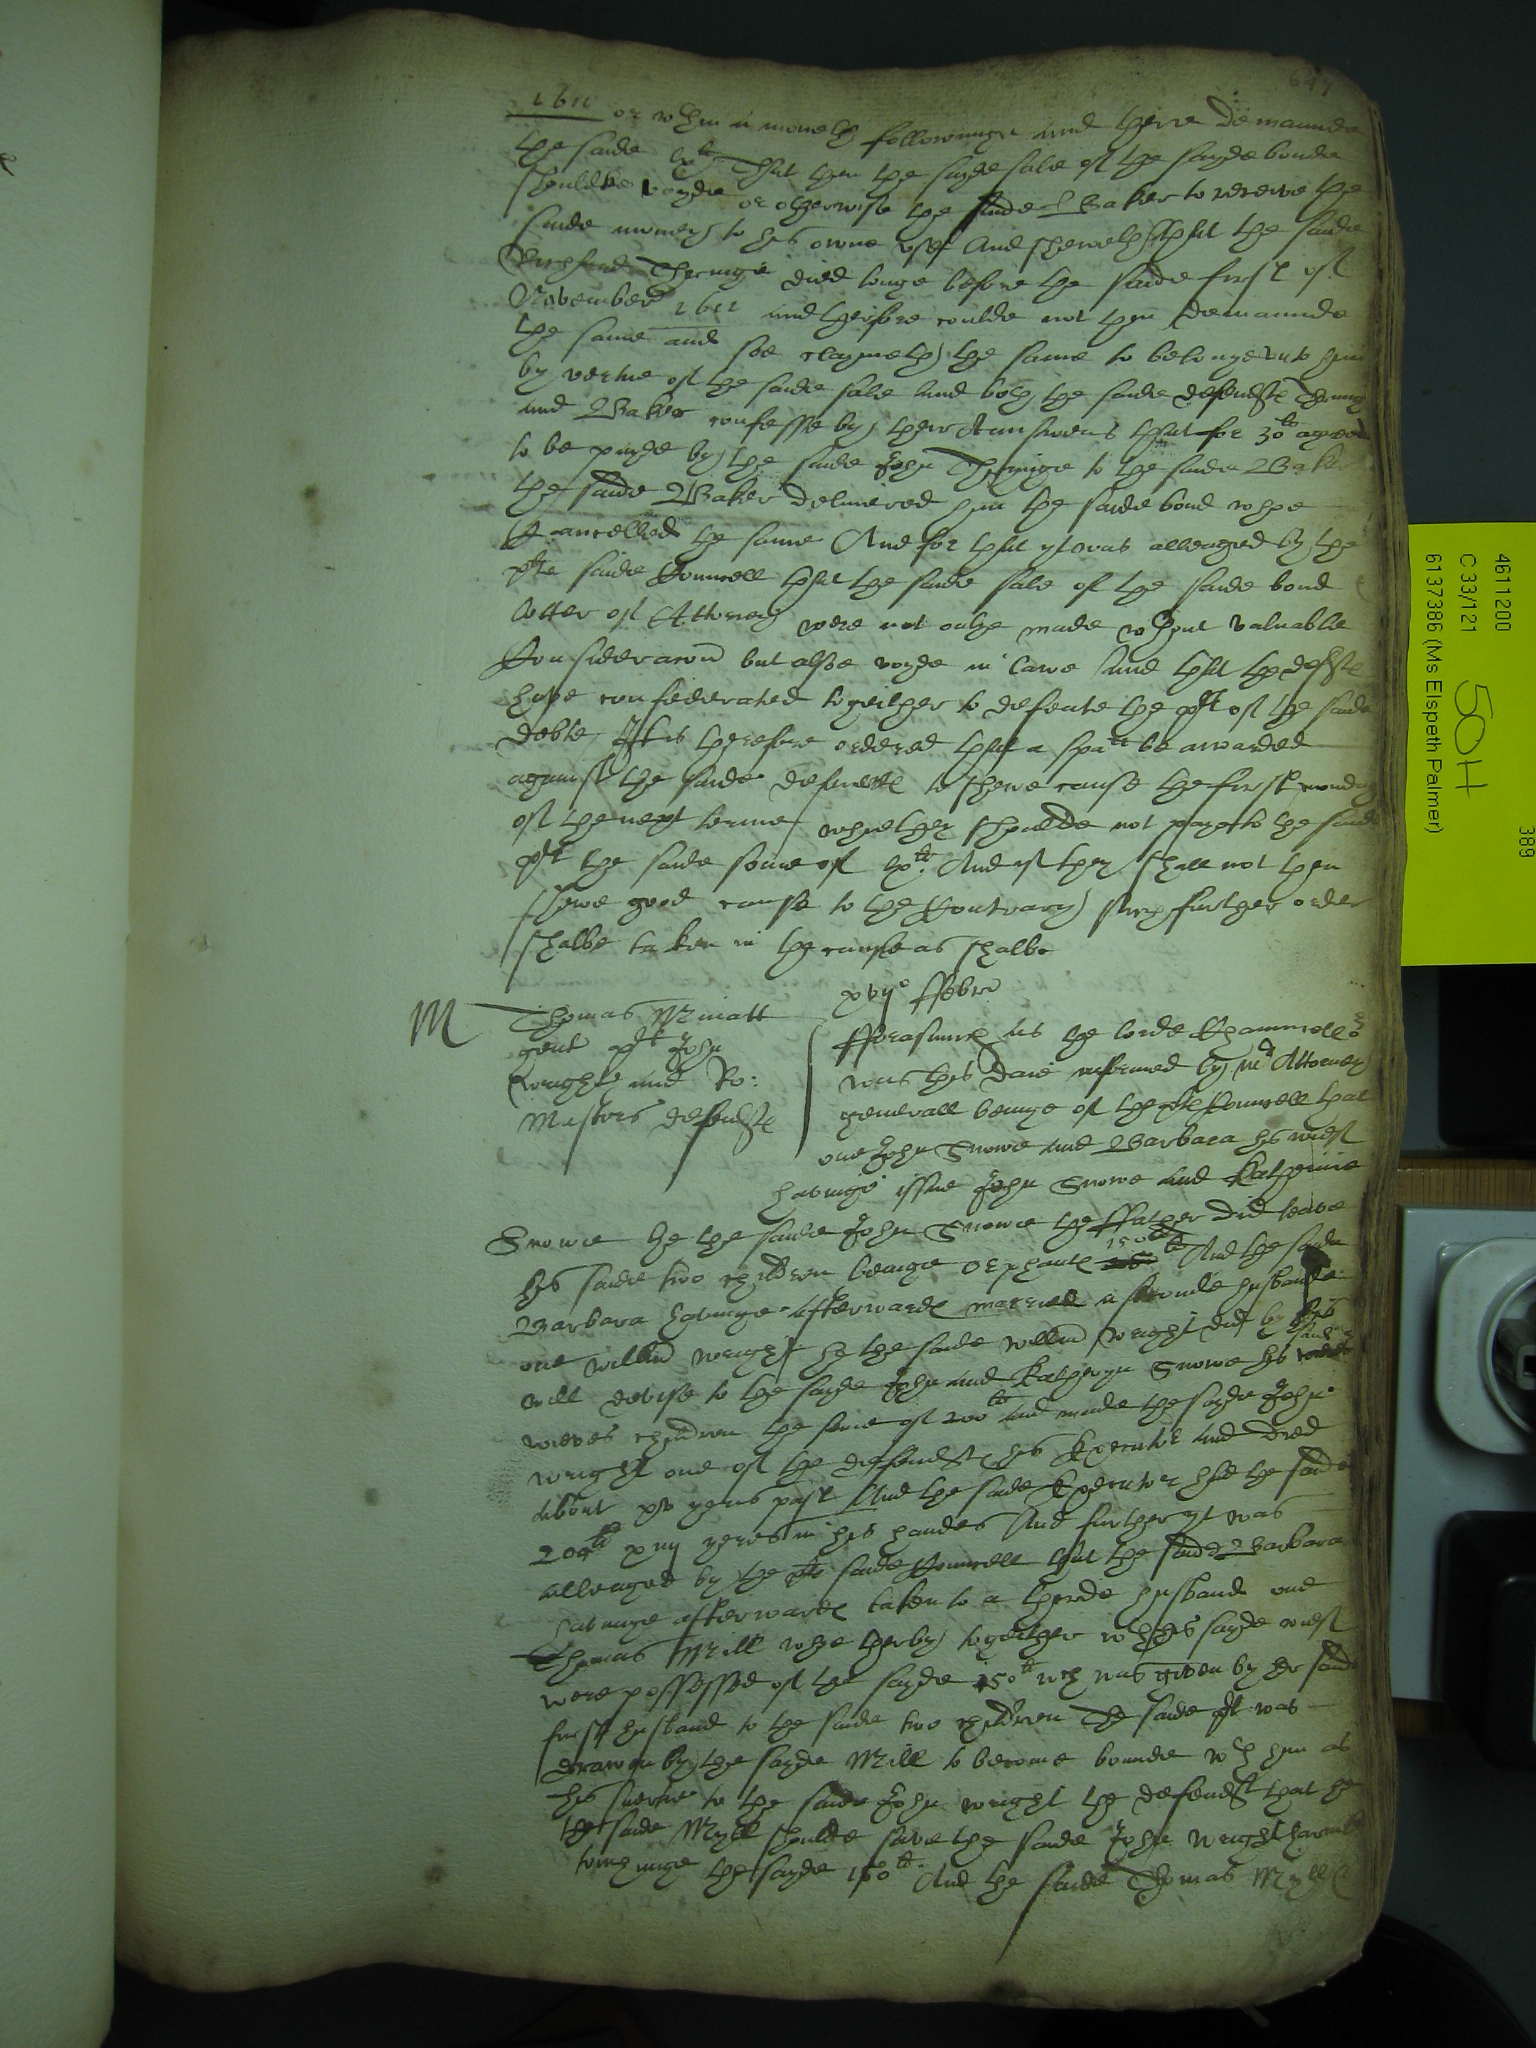 647
1611 or wthin a moneth followinge and there demaunde
the saide lxli That then the sayde sale of the sayde bonde
should be voyde or otherwise the saide Baker to receive the
saide money to his owne use And sheweth that the saide
Theringe died longe before the saide first of
November 1611 and therfore coulde not then demaunde
the same and soe claymeth the same to belonge unto him
by vertue of the saide sale And both the saide defendtes
and Baker confesse by their Aunsweres that for 30li agreed
to be payde by the saide John Theringe to the saide Baker
the saide Baker delivered him the saide bond whoe
cancelled the same And for that yt was alleaged by the
plts saide Councell that the saide sale of the saide bond
letter of Attorney were not onlye made wthout valuable
Consideracon but alsoe voyde in lawe And that the defdtes
have confederated togeither to defeate the plt of the saide
debte It is therefore ordered that a spa be awarded
against the saide defendtes to shewe cause the first monday
of the next terme whie they shoulde not paye to the saide
plt the saide some of lxli And if they shall not then
shewe good cause to the Contrary such further order
shalbe taken in the cause as shalbe
xvijo Febr
M Thomas Miatt
gent plt John
Wright and Ro:
Masters defendtes
Forasmuch as the lorde Chauncellor
was this daie informed by Mr Attorney
generall beinge of the plts Councell that
one John Snowe and Barbara his wief
havinge issue John Snowe and Katherine
Snowe he the saide John Snowe the Father did leave
his saide two children beinge orphants 150li And the saide
Barbara havinge afterwardes married a seconde husbande
one Willm Wright he the saide Willm Wright did by his
will devise to the sayde John and Katheryn Snowe his saide
wieves children the some of 200li and made the sayde John
Wright one of the defendtes his Executor and died
about xv yeres past And the saide Executor had the saide
200li xiiij yeres in his handes And further yt was
alleaged by the plts saide Councell that the saide Barbara
havinge afterwardes taken to a therde husband one
Thomas Mill whoe therby togeither wth his sayde wief
were possessed of the sayde 150li wch was given by her saide
first husband to the saide two children The saide plt was
drawen by the sayde Mill to become bounde wth him as
his suertie to the saide John Wright the defendt that he
the saide Myll shoulde save the saide John Wright harmles
towchinge the sayde 150li And the saide Thomas Myll
4611200
C 33/121 50H
6137386 (Ms Elspeth Palmer)
389